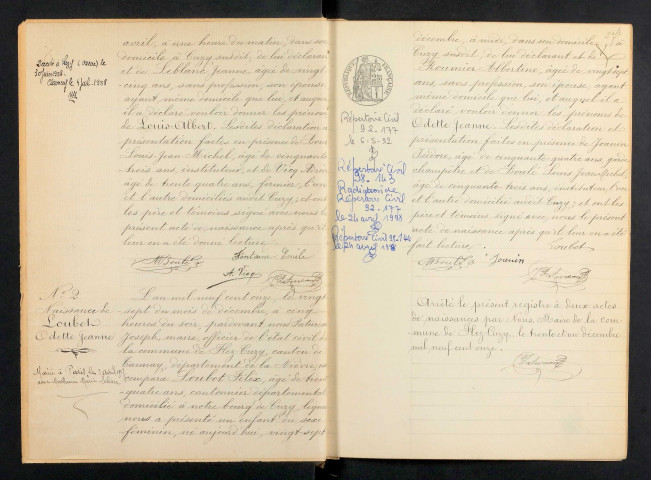 Décédé à
30 juin 1908.
Clamecy le 4 juil. 1908
avril, à une heure du matin, dans son
domicile à Cuzy susdit, de lui déclarant
et de Leblanc Jeanne âgée de vingt
cinq ans, sans profession, son épouse
ayant même domicile que lui, et auquel
il a déclaré vouloir donner les prénoms
de Louis Albert. Lesdites déclaration et
présentation faites en présence de
Louis Jean Michel, âgé de cinquante
trois ans, instituteur, et de
âgé de trente quatre ans, fermier, l'un
et l'autre domiciliés audit Cuzy; et ont
les père et témoins signé avec nous le
présent acte de naissance après qu'il
leur en a été donné lecture.
Fontaine Emile
N° 2
Naissance de
Loubot
Odette Jeanne
Mariée à Paris, le 7 avril
L'an mil neuf cent onze, le vingt
sept du mois de décembre, à cinq
heures du soir, paravant nous
Joseph, maire, officier de l'état civil de
la commune de Flez Cuzy, canton de
Tannay, département de la Nièvre, est
comparu Loubot Félix, âgé de trente
quatre ans, cantonnier départemental
domicilié à notre bourg de Cuzy, lequel
nous a présenté un enfant du sexe
féminin, né aujourd'hui, vingt sept
REPUBLIQUE FRANÇAISE
Répertoire Civil
92.177
le 6.5.92
Répertoire Civil
98.143
Radiation
Répertoire Civil
92.177
le 24 avril 1998
Répertoire Civil 98.144
le 24 avril 1998
décembre, à midi, dans son domicile, à
Cuzy susdit, de lui déclarant et de
Albertine, âgée de vingt sept
ans, sans profession, son épouse, ayant
même domicile que lui, et auquel il a
déclaré vouloir donner les prénoms de
Odette Jeanne. Lesdites déclaration et
présentation faites en présence de Jounin
Isidore, âgé de cinquante quatre ans, garde
champêtre et de
âgé de cinquante trois ans, instituteur, l'un
et l'autre domiciliés audit Cuzy; et ont les
père et témoins signé avec nous le présent
acte de naissance après qu'il leur en a été
fait lecture. Loubot
Jounin
Arrêté le présent registre à deux actes
de naissances par Nous, Maire de la com-
mune de Flez Cuzy, le trente et un décembre
mil neuf cent onze.